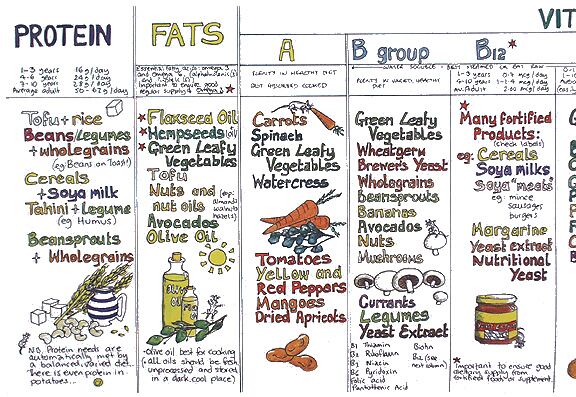 PROTEIN
1-3 years 15g/day
4-6 years 24g/day
7-10 years 28g/day
Average adult 30-62g/day
Tofu + rice
Beans/legumes
+ wholegrains
(eg Beans on Toast!)
Cereals
+ Soya milk
Tahini + Legume
(eg Humus)
Beansprouts
+ Wholegrains
NB. Protein needs are
automatically met by
a balanced, varied diet.
There is even protein in
potatoes...
FATS
Essential fatty acids: omega 3
and omega 6.
Important to ensure good
regular supply of omega 3
Flaxseed Oil
Hempseeds (oil)
Green Leafy
Vegetables
Tofu
Nuts and
nut oils
(esp: Almonds
walnuts
hazels)
Avocados
Olive Oil
OLIVE
OIL
-olive oil best for cooking
(all oils should be fresh,
unprocessed and stored
in a dark, cool place)
VIT
A
PLENTY IN HEALTHY DIET
BEST ABSORBED COOKED
Carrots
Spinach
Green Leafy
Vegetables
Watercress
Tomatoes
Yellow and
Red Peppers
Mangoes
Dried Apricots
B group
WATER SOLUBLE
PLENTY IN VARIED, HEALTHY
DIET
Green Leafy
Vegetables
Wheatgerm
Brewer's Yeast
Wholegrains
Beansprouts
Bananas
Avocados
Nuts
Mushrooms
Currants
Legumes
Yeast Extract
B1 Thiamin
B2 Riboflavin
B3 Niacin
B6 Pyridoxin
Folic acid
Pantothenic Acid
Biotin
B12 (see
next column)
B12
1-3 years 0.5 mcg/day
4-10 years
Av. Adult
Many fortified
Products:
(check labels)
eg: Cereals
Soya milks
Soya "meats"
eg: mince
sausages
burgers
Margarine
Yeast extract
Nutritional
Yeast
Important to ensure good
dietary supply from
fortified food or supplement.